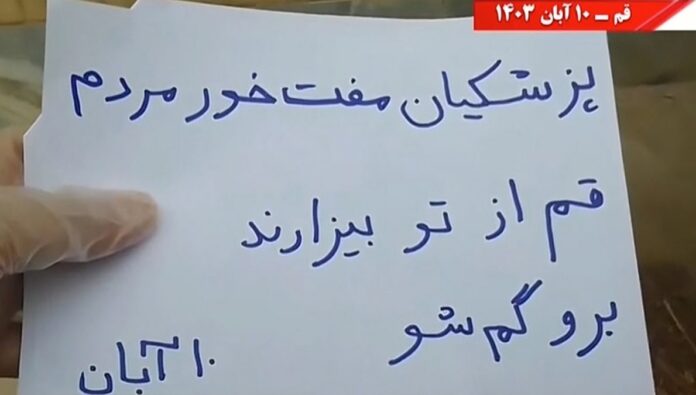 قم ــ ۱۰ آبان ۱۴۰۳
پزشکیان مفت خور مردم
قم از تو بیزارند
برو گم شو
۱۰ آبان